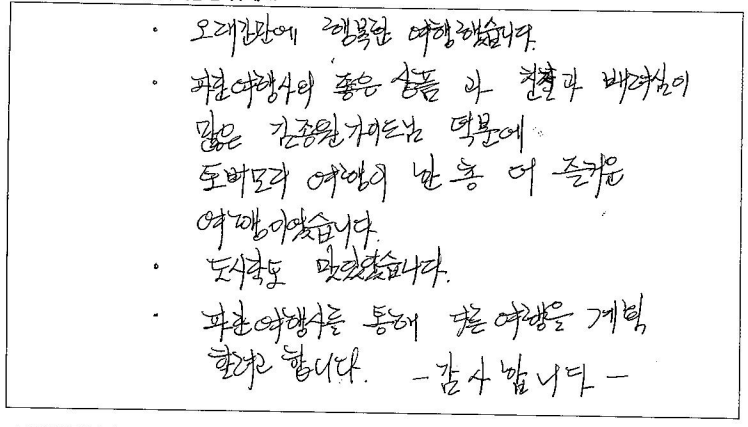 · 오래간만에 행복한 여행했습니다.
· 파란여행사의 좋은 상품 과 친찰과 배려심이
많은 김종원가이드님 덕분에
도버모라 여행이 한 층 더 즐거운
여행이었습니다.
· 도시락도 맛있었습니다.
· 파란여행사를 통해 다른 여행을 계획
할려고 합니다. - 감사합니다 -